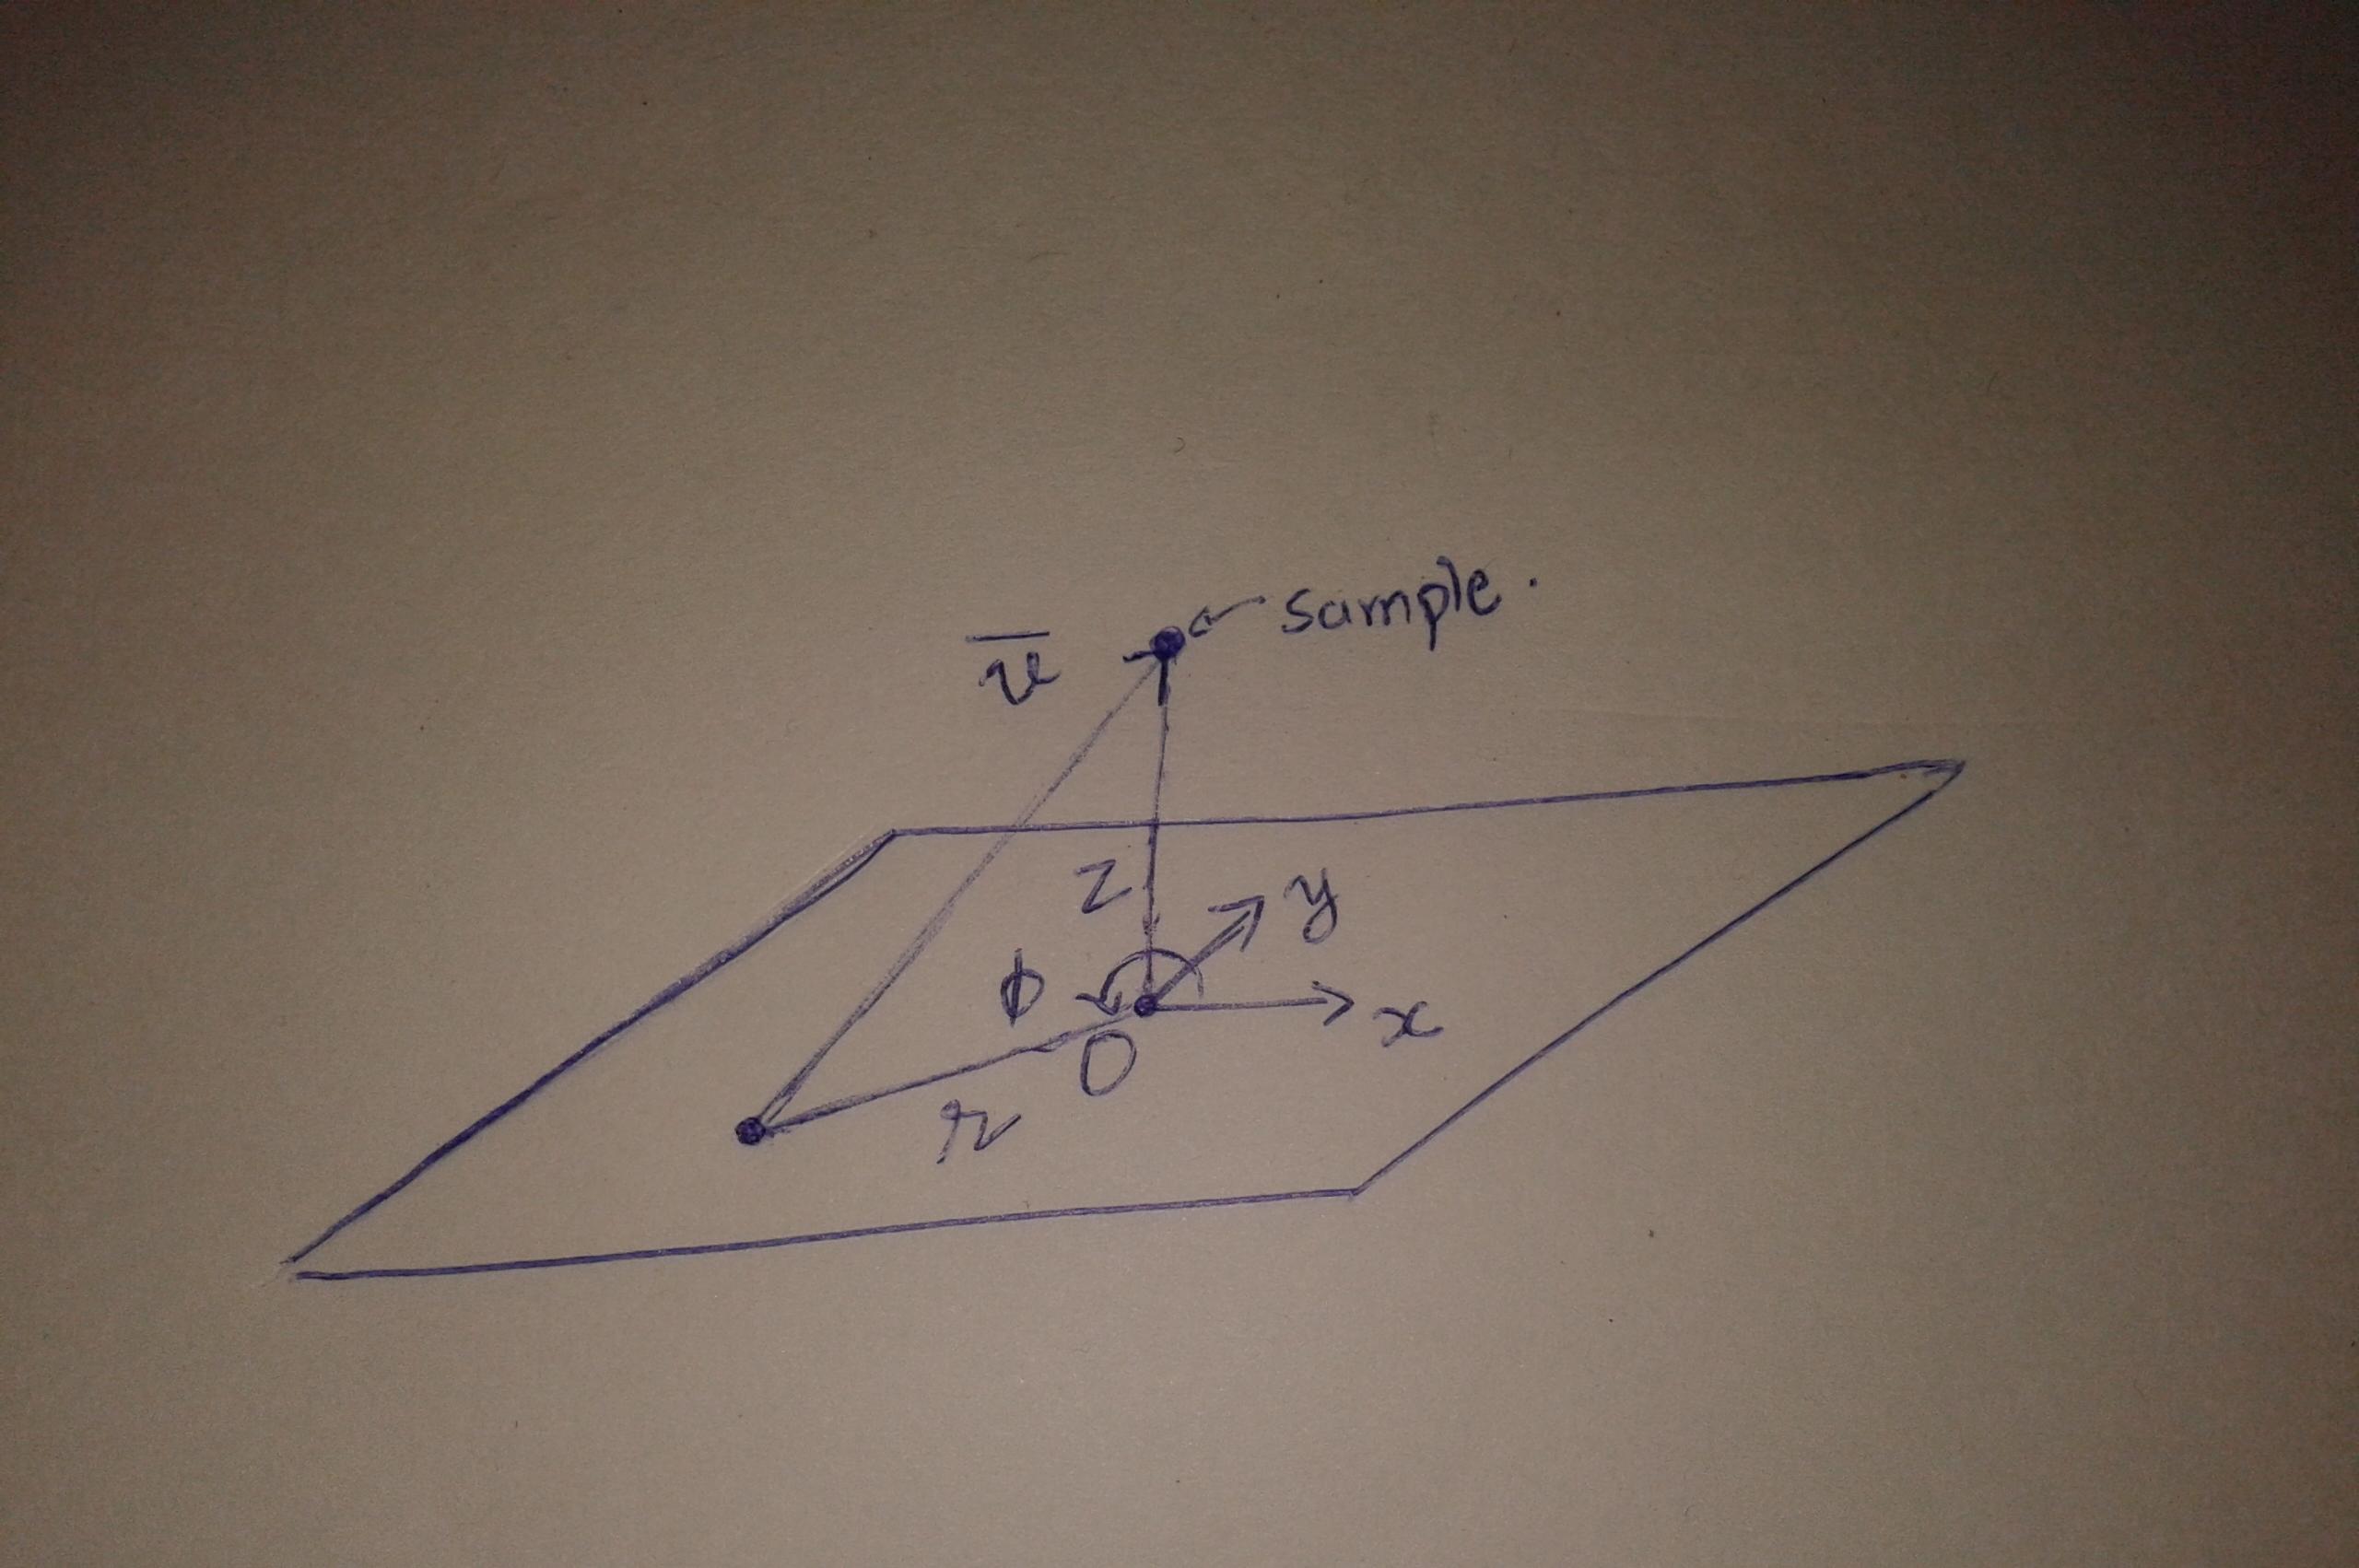 sample.
z
y
ϕ
x
O
r